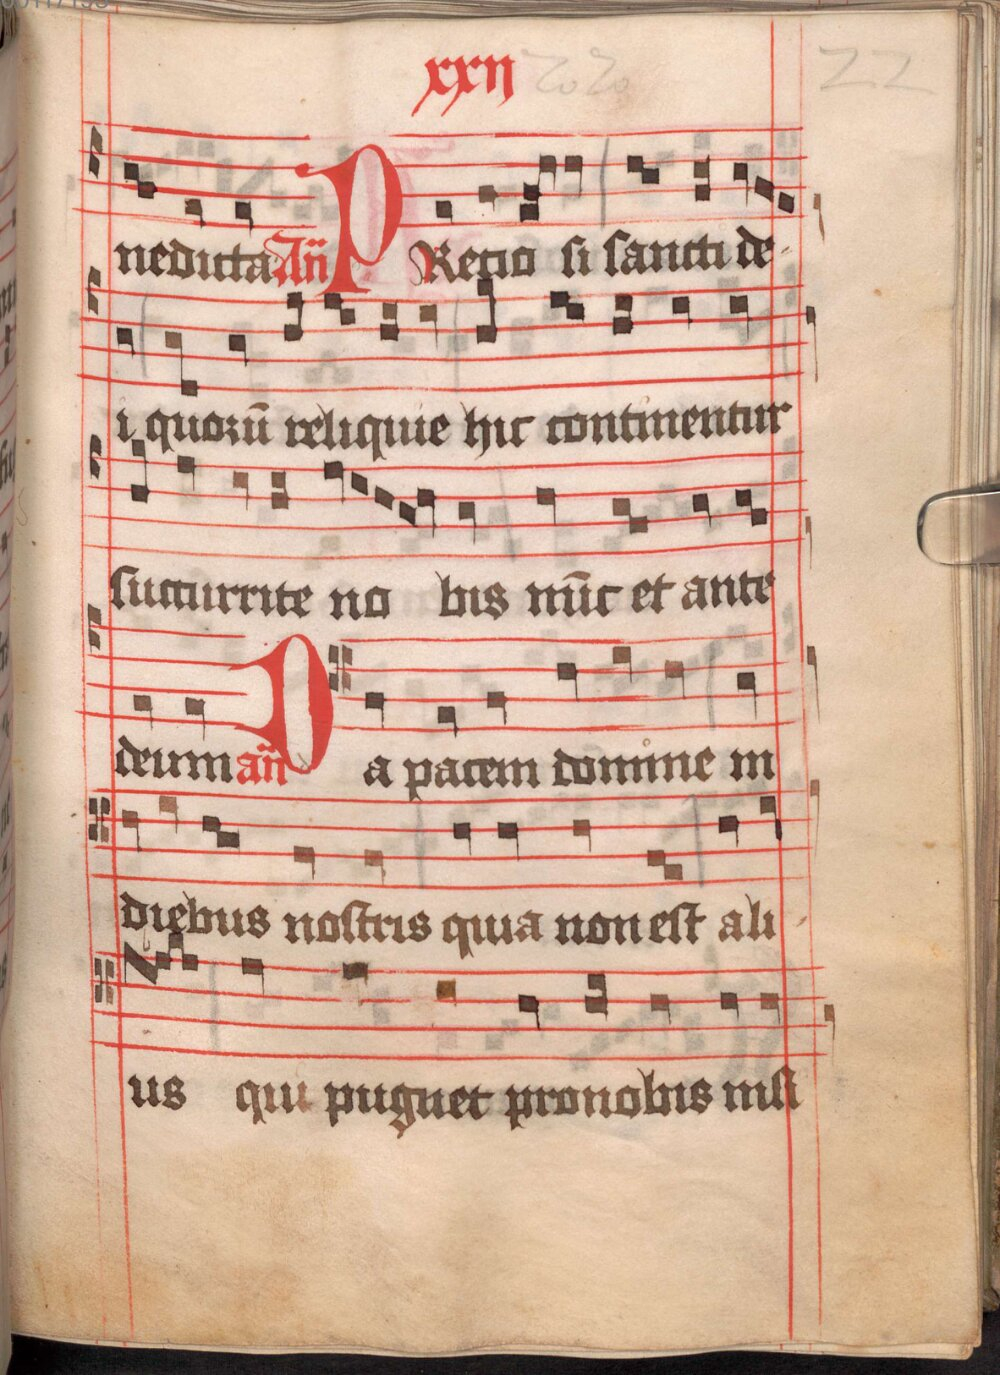 xxij 22
nedicta Añ PRecio si sancti de-
i quorū reliquie hic continentur
succurrite no bis nūc et ante
deum añ Da pacem domine in
diebus nostris quia non est ali
us qui pugnet pro nobis nisi